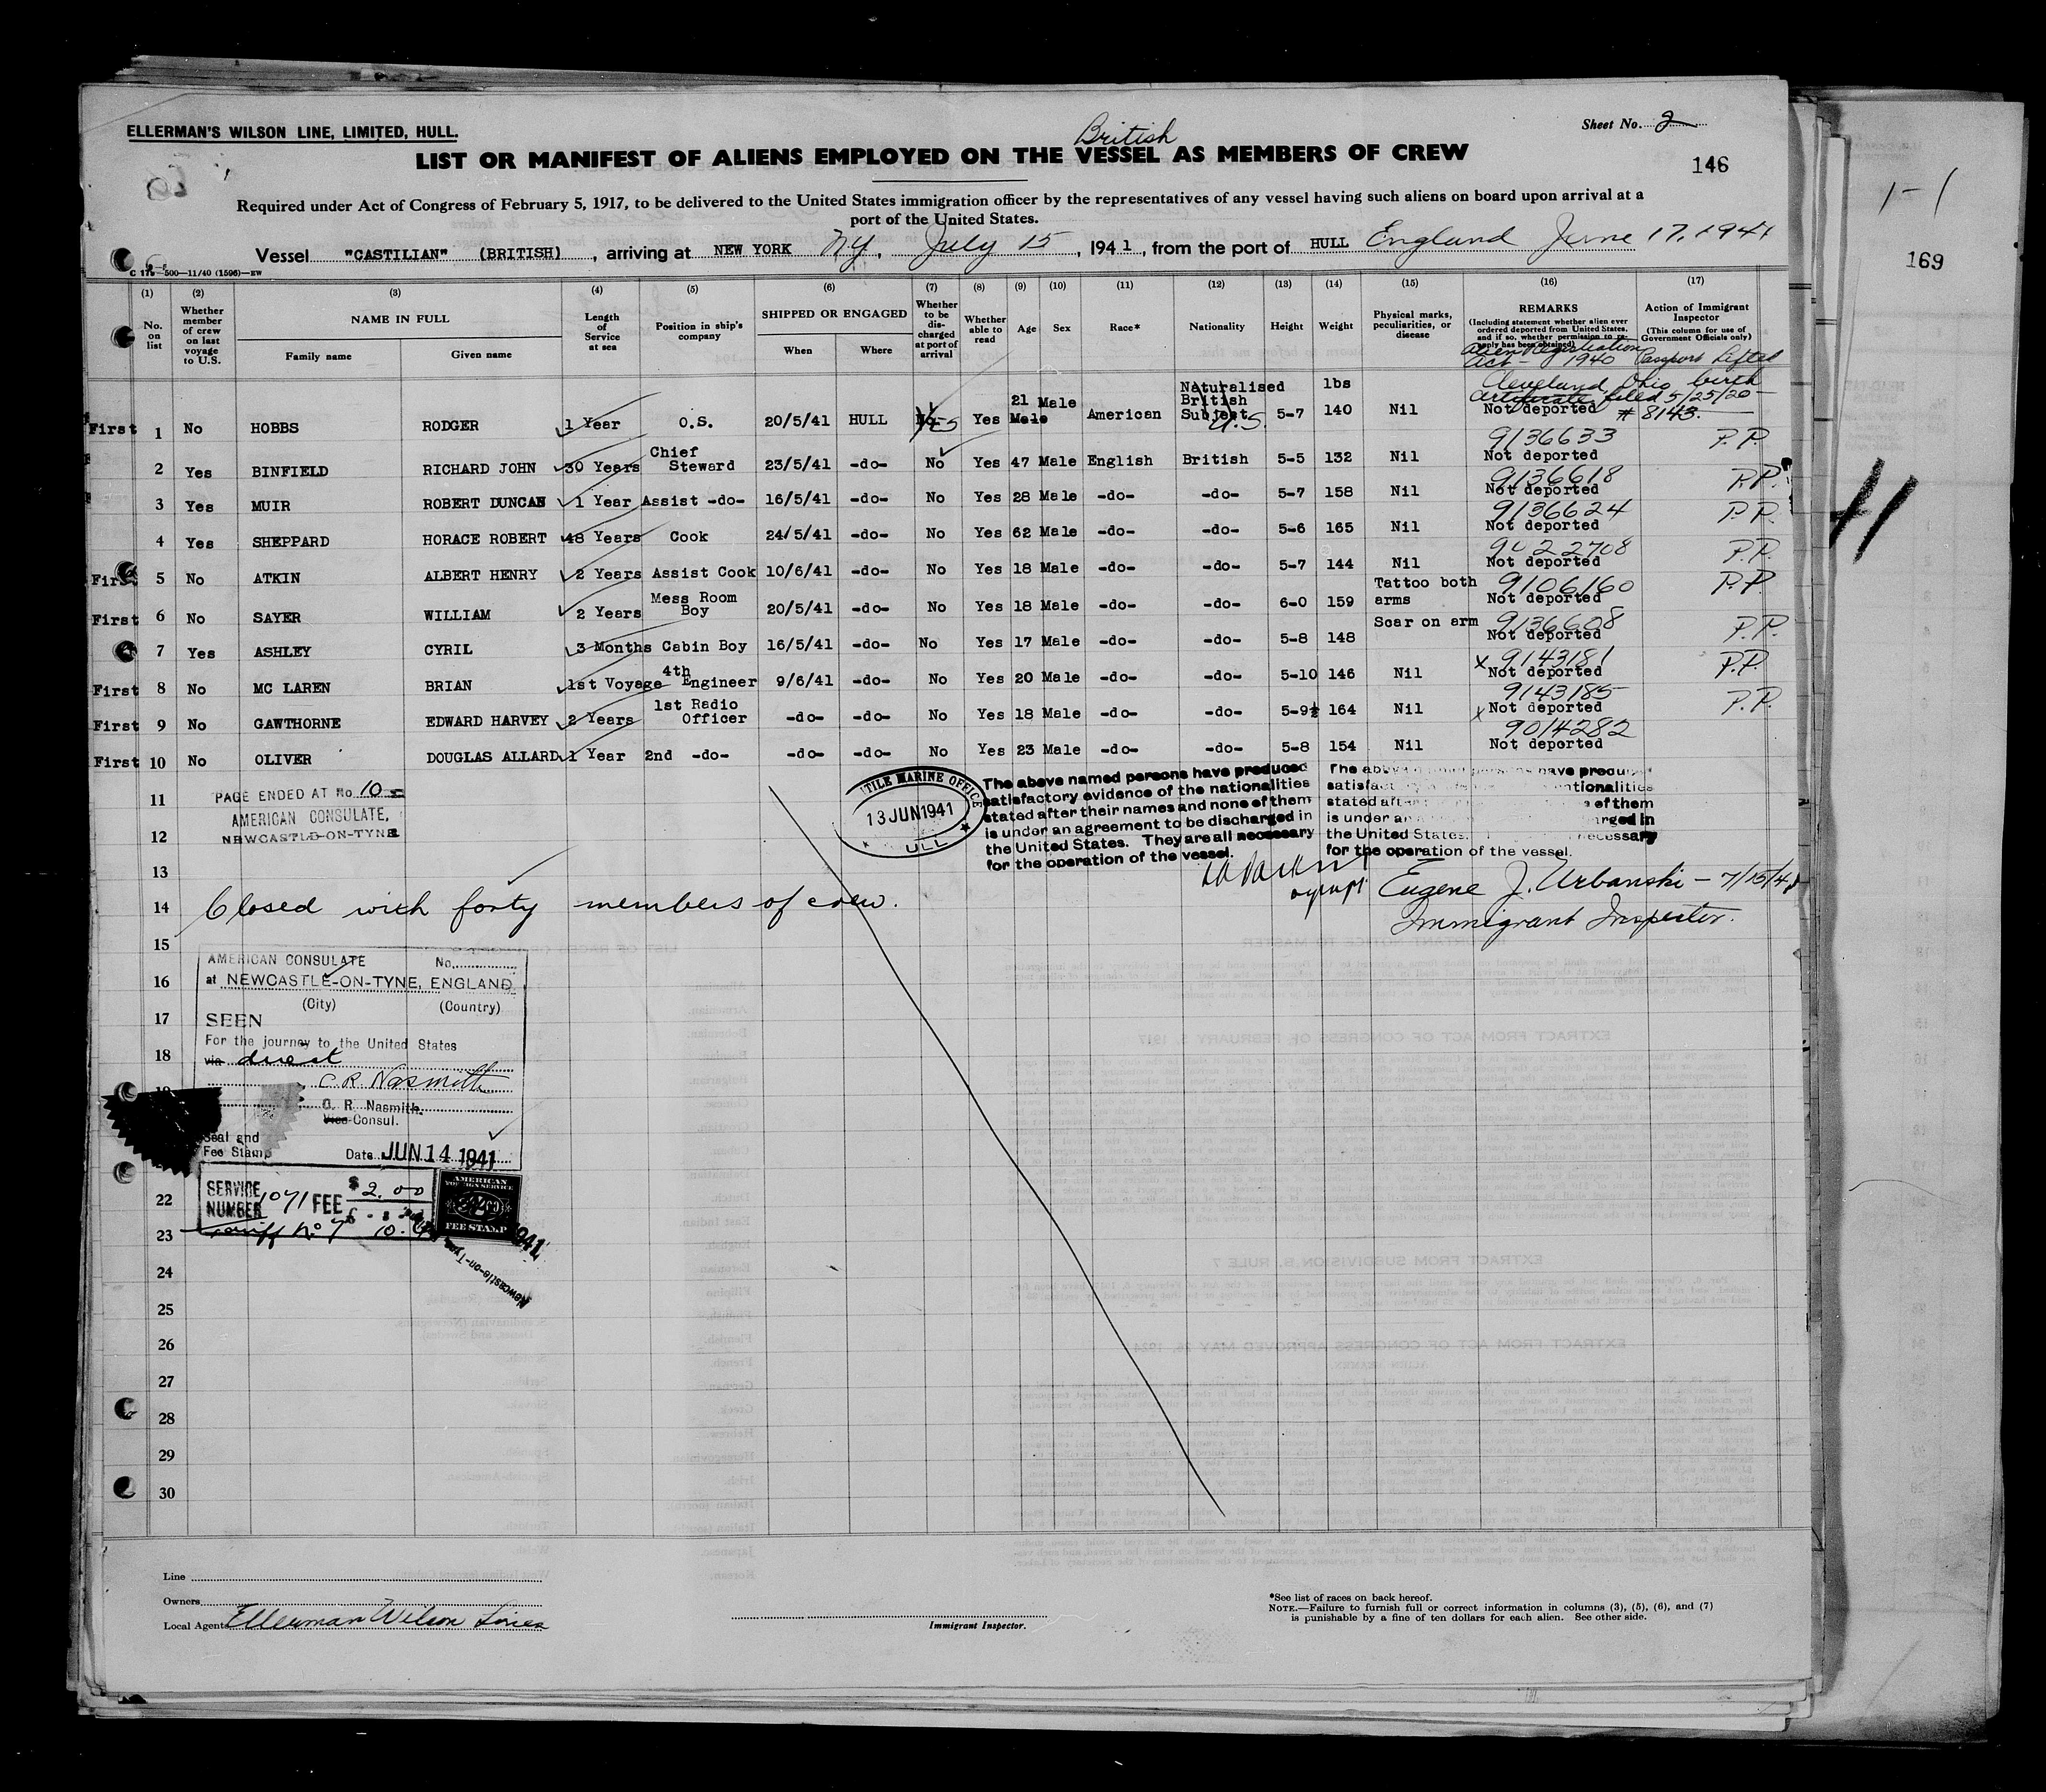 ELLERMAN'S WILSON LINE, LIMITED, HULL.
Sheet No. 2
British
LIST OR MANIFEST OF ALIENS EMPLOYED ON THE VESSEL AS MEMBERS OF CREW
146
Required under Act of Congress of February 5, 1917, to be delivered to the United States immigration officer by the representatives of any vessel having such aliens on board upon arrival at a
port of the United States.
Vessel "CASTILIAN" (BRITISH), arriving at NEW YORK N.Y., July 15, 1941, from the port of HULL England June 17, 1941
169
(1) (2) (3) (4) (5) (6) (7) (8) (9) (10) (11) (12) (13) (14) (15) (16) (17)
No. on list
Whether member of crew on last voyage to U.S.
NAME IN FULL
Family name
Given name
Length of Service at sea
Position in ship's company
SHIPPED OR ENGAGED
When
Where
Whether to be discharged at port of arrival
Whether able to read
Age
Sex
Race*
Nationality
Height
Weight
Physical marks, peculiarities, or disease
REMARKS
(Including statement whether alien ever ordered deported from United States, and if so, whether permission to reapply has been obtained)
Alien Registration Act - 1940
Action of Immigrant Inspector
(This column for use of Government Officials only)
Passport Lifted
Cleveland, Ohio birth
Certificate filed 5/25/20
# 8143.
First 1 No HOBBS RODGER 1 Year O.S. 20/5/41 HULL Yes Yes 21 Male Male American Naturalised British Subject U.S. 5-7 lbs 140 Nil Not deported
2 Yes BINFIELD RICHARD JOHN 30 Years Chief Steward 23/5/41 -do- No Yes 47 Male English British 5-5 132 Nil 9136633 Not deported P.P.
3 Yes MUIR ROBERT DUNCAN 1 Year Assist -do- 16/5/41 -do- No Yes 28 Male -do- -do- 5-7 158 Nil 9136618 Not deported P.P.
4 Yes SHEPPARD HORACE ROBERT 48 Years Cook 24/5/41 -do- No Yes 62 Male -do- -do- 5-6 165 Nil 9136624 Not deported P.P.
First 5 No ATKIN ALBERT HENRY 2 Years Assist Cook 10/6/41 -do- No Yes 18 Male -do- -do- 5-7 144 Nil 9022708 Not deported P.P.
First 6 No SAYER WILLIAM 2 Years Mess Room Boy 20/5/41 -do- No Yes 18 Male -do- -do- 6-0 159 Tattoo both arms 9106160 Not deported P.P.
7 Yes ASHLEY CYRIL 3 Months Cabin Boy 16/5/41 -do- No Yes 17 Male -do- -do- 5-8 148 Scar on arm 9136608 Not deported P.P.
First 8 No MC LAREN BRIAN 1st Voyage 4th Engineer 9/6/41 -do- No Yes 20 Male -do- -do- 5-10 146 Nil x 9143181 Not deported P.P.
First 9 No GAWTHORNE EDWARD HARVEY 2 Years 1st Radio Officer -do- -do- No Yes 18 Male -do- -do- 5-9½ 164 Nil x 9143185 Not deported P.P.
First 10 No OLIVER DOUGLAS ALLARD 1 Year 2nd -do- -do- -do- No Yes 23 Male -do- -do- 5-8 154 Nil 9014282 Not deported
11
PAGE ENDED AT No. 10
AMERICAN CONSULATE,
12
NEWCASTLE-ON-TYNE
TILE MARINE OFFICE
13 JUN 1941
ULL
The above named persons have produced
satisfactory evidence of the nationalities
stated after their names and none of them
is under an agreement to be discharged in
the United States. They are all necessary
for the operation of the vessel.
The above persons have produced
satisfact nationalities
stated after of them
is under an arged in
the United States. necessary
for the operation of the vessel.
13
Eugene J. Urbanski - 7/15/41
Immigrant Inspector.
14 Closed with forty members of crew.
15
AMERICAN CONSULATE No.
16
at NEWCASTLE-ON-TYNE, ENGLAND
(City) (Country)
17
SEEN
For the journey to the United States
18
via direct
C R Nasmith
C. R. Nasmith.
Vice Consul.
Seal and
Fee Stamp
Date JUN 14 1941
22
SERVICE NUMBER 1071 FEE $2.00
23
Tariff No. 7
AMERICAN FOREIGN SERVICE
FEE STAMP
1941
Newcastle-on-Tyne
24
25
26
27
28
29
30
Line
Owners
Local Agents Ellerman Wilson Lines
Immigrant Inspector.
*See list of races on back hereof.
NOTE.—Failure to furnish full or correct information in columns (3), (5), (6), and (7)
is punishable by a fine of ten dollars for each alien. See other side.
C 178-500-11/40 (1596)-EW